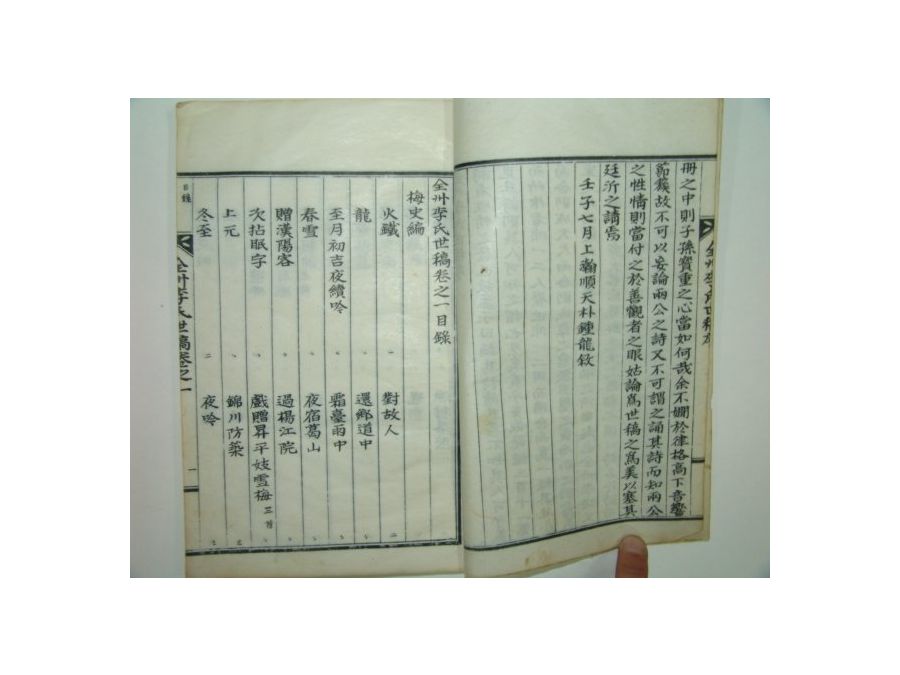 冊之中則子孫寶重之心當如何哉余不嫺於律格高下音響
節簇故不可以妄論兩公之詩又不可謂之誦其詩而知兩公
之性情則當付之於善觀者之眼姑論爲世稿之爲美以塞其
廷沂之請焉
壬子七月上澣順天朴鍾龍敘
全州李氏世稿卷之一目錄
梅史編
火鐵 一
對故人 二
龍
還鄕道中
至月初吉夜續吟
霜臺雨中
春雪
夜宿葛山
贈漢陽客
過楊江院
次拈眠字
戲贈昇平妓雪梅 三首
上元
錦川防築
冬至 二
夜吟
目錄
全州李氏世稿卷之一
一